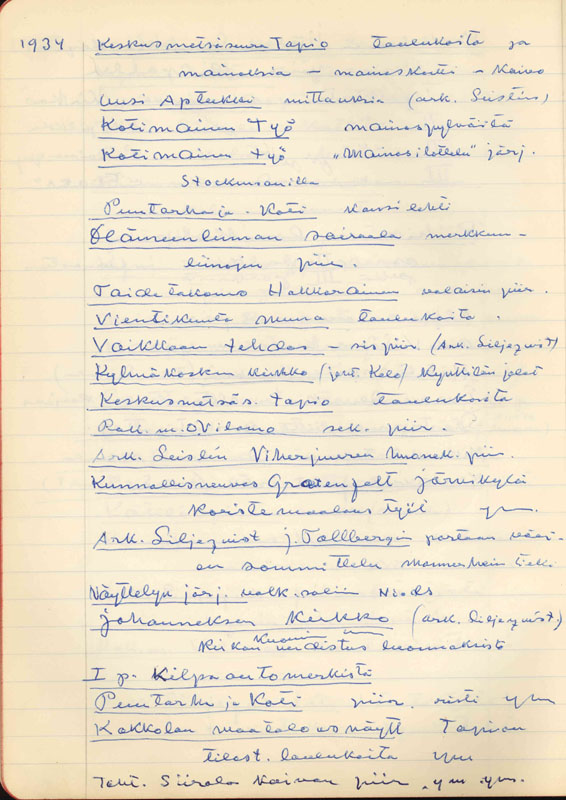 1934 Keskusmetsäseura Tapio taulukoita ja
mainoksia – maineskortti – Kaivo
Uusi Apteekki mittauksia (ark. Seistén)
Kotimainen Työ mainospylväitä
Kotimainen työ „Mainosilottelu" järj.
Stockmannilla
Puutarha ja Koti kansilehti
Hämeenlinnan sairaala merkkaus-
liinojen piir.
Taidetakomo Hakkarainen valaisin piir.
Vientikunta muna taulukoita.
Vaikkaan tehdas – sis piir (Ark. Siljeqvist)
Kylmäkosken kirkko Kynttilän jalat
Keskusmetsäs. Tapio taulukoita
Rak. m. O. Vilamo sek. piir.
Ark. Seistén Viherjuuren huonek. piir.
Kunnallisneuvos Grotenfelt Järvikylä
Koristemaalaus työt ym.
Ark. Siljeqvist j. Tallbergin portaan
sommittelu Mannerheim tiellä
Näyttelyn järj. valk. salin
Johanneksen Kirkko (ark. Siljeqvist.)
Kirkon Kuorin uudistus luonnoksista
I p. Kilpa automerkistä
Puutarha ja Koti piir. risti ym
Kokkolan maatalousnäytt Tapion
tilast. taulukoita ym
Teht. Siirala Kaivon piir. ym. ym.